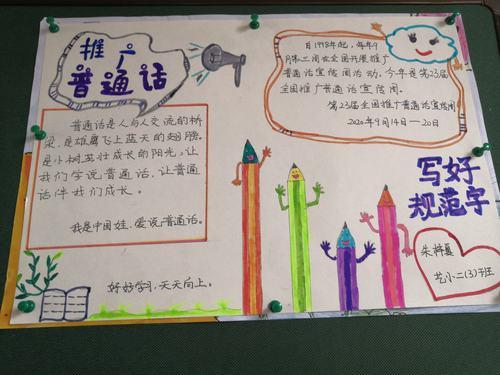 推广
普通话
普通话是人与人交流的桥
梁,是雄鹰飞上蓝天的翅膀。
是小树茁壮成长的阳光,让
我们学说普通话,让普通
话伴我们成长。
我是中国娃,爱说普通话。
好好学习,天天向上。
自1998年起,每年9
月第三周在全国开展推广
普通话宣传周活动,今年是第23届
全国推广普通话宣传周。
第23届全国推广普通话宣传周
2020年9月14日——20日
写好
规范字
朱梓夏
艺小二(3)班